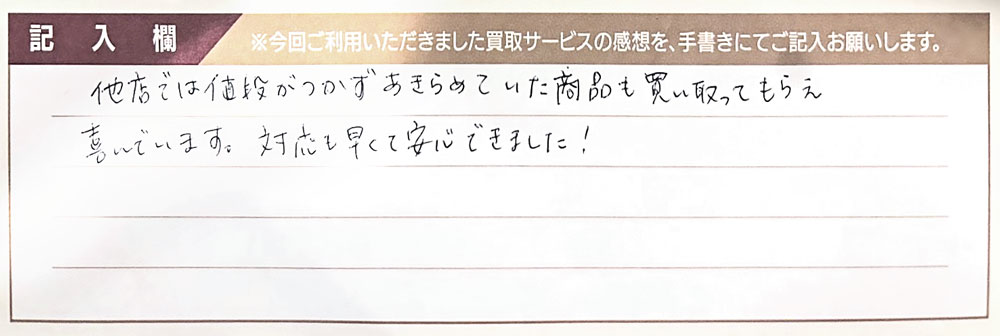 記入欄
※今回ご利用いただきました買取サービスの感想を、手書きにてご記入お願いします。
他店では値段がつかずあきらめていた商品も買い取ってもらえ
喜んでいます。対応も早くて安心できました！